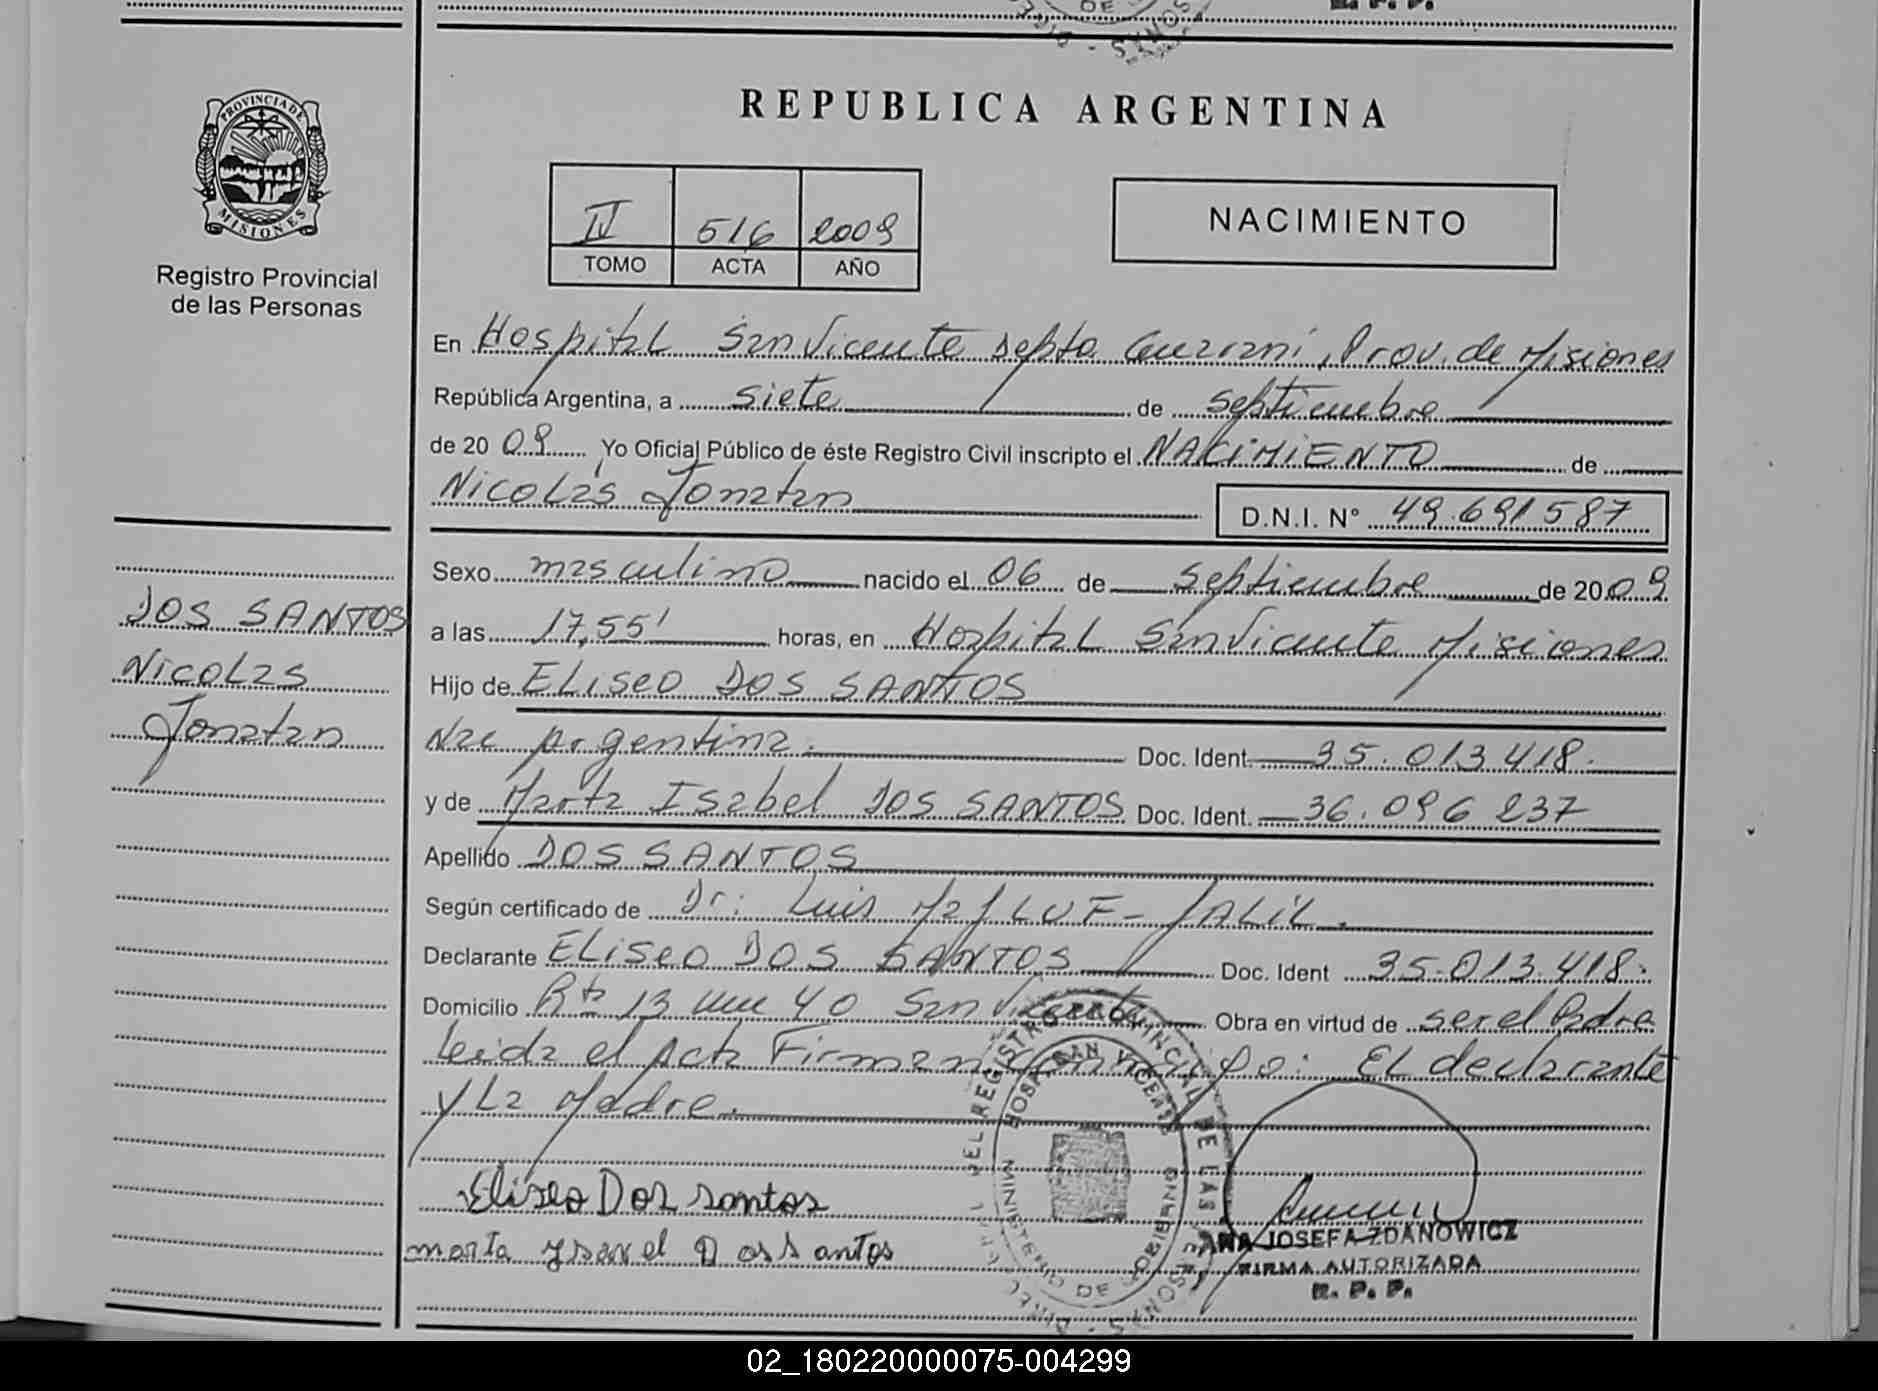 DE
R. P. P.
PROVINCIA DE
MISIONES
Registro Provincial
de las Personas
REPUBLICA ARGENTINA
IV 516 2009
TOMO ACTA AÑO
NACIMIENTO
En Hospital San Vicente Depto Guaraní, Prov. de Misiones
República Argentina, a siete de septiembre
de 20 09 Yo Oficial Público de éste Registro Civil inscripto el NACIMIENTO de
Nicolás Jonatan
D.N.I. N° 49.691587
Sexo masculino nacido el 06 de septiembre de 20 09
a las 17,55' horas, en Hospital San Vicente Misiones
Hijo de Eliseo DOS SANTOS
Nac Argentina. Doc. Ident. 35.013418.
y de Marta Isabel DOS SANTOS Doc. Ident. 36.096237
Apellido DOS SANTOS
Según certificado de Dr: Luis JALIL.
Declarante Eliseo DOS SANTOS Doc. Ident 35.013.418.
Domicilio Rta 13 40 San Vicente Obra en virtud de ser el Padre
Leida el Acta Firman conmigo: El declarante
y La Madre.
DOS SANTOS
Nicolas
Jonatan
Eliseo Dos santos
marta ysavel Dos Santos
DEL REGISTRO PROVINCIAL DE LAS PERSONAS
HOSP. SAN VICENTE
MINISTERIO DE GOBIERNO
ANA JOSEFA ZDANOWICZ
FIRMA AUTORIZADA
R. P. P.
02_180220000075-004299